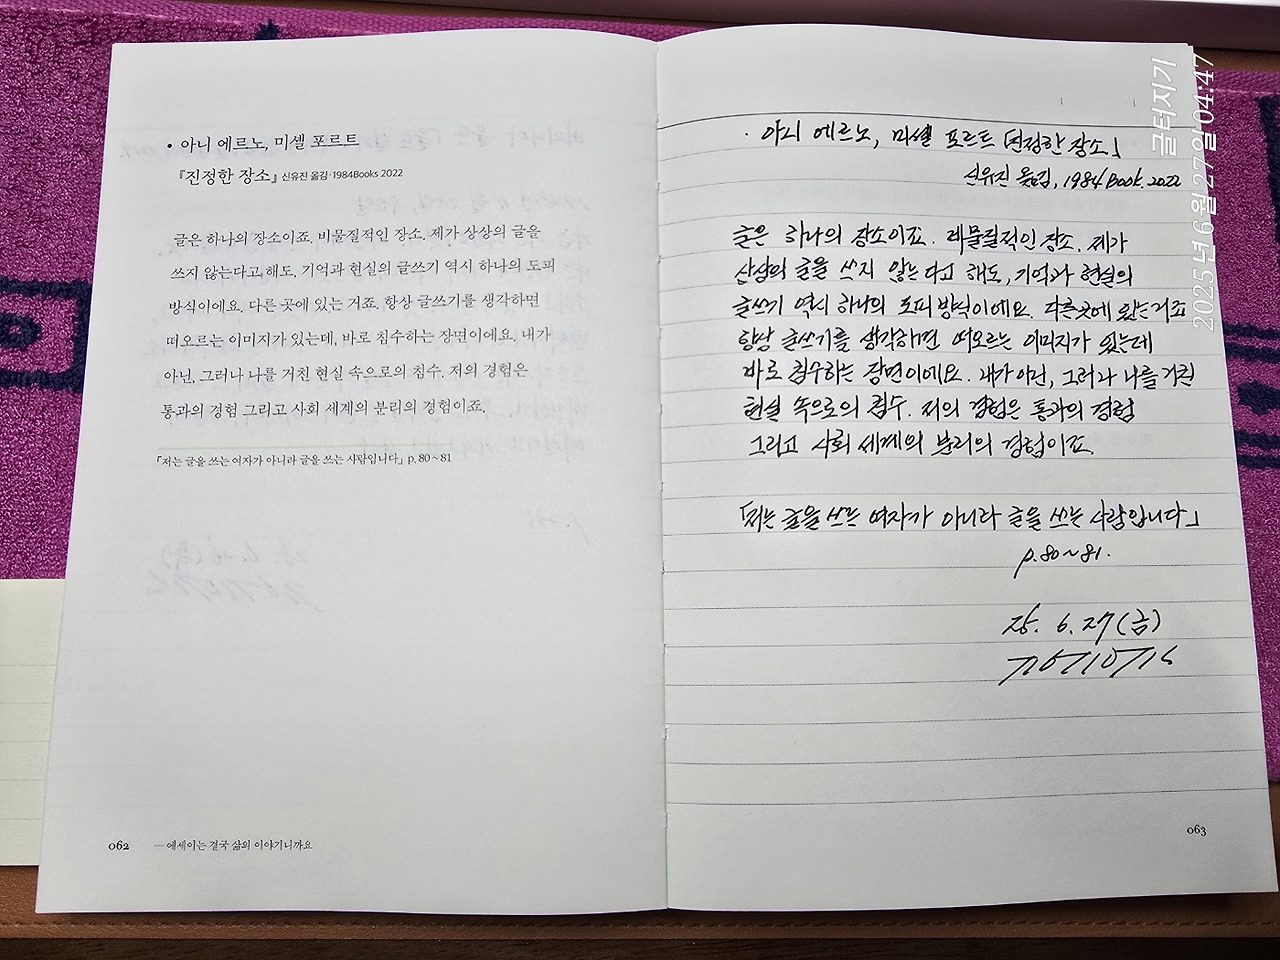 • 아니 에르노, 미셸 포르트
『진정한 장소』 신유진 옮김·1984Books 2022
글은 하나의 장소이죠. 비물질적인 장소. 제가 상상의 글을
쓰지 않는다고 해도, 기억과 현실의 글쓰기 역시 하나의 도피
방식이에요. 다른 곳에 있는 거죠. 항상 글쓰기를 생각하면
떠오르는 이미지가 있는데, 바로 침수하는 장면이에요. 내가
아닌, 그러나 나를 거친 현실 속으로의 침수. 저의 경험은
통과의 경험 그리고 사회 세계의 분리의 경험이죠.
「저는 글을 쓰는 여자가 아니라 글을 쓰는 사람입니다」 p. 80~81
062 — 에세이는 결국 삶의 이야기니까요
· 아니 에르노, 미셸 포르트 「진정한 장소」
신유진 옮김, 1984 Book. 2022
글은 하나의 장소이죠. 비물질적인 장소. 제가
상상의 글을 쓰지 않는다고 해도, 기억과 현실의
글쓰기 역시 하나의 도피 방식이에요. 다른곳에 있는거죠
항상 글쓰기를 생각하면 떠오르는 이미지가 있는데
바로 침수하는 장면이에요. 내가 아닌, 그러나 나를 거친
현실 속으로의 침수. 저의 경험은 통과의 경험
그리고 사회 세계의 분리의 경험이죠.
「저는 글을 쓰는 여자가 아니라 글을 쓰는 사람입니다」
p. 80~81.
25. 6. 27(금)
063
글터지기
2025년 6월 27일 04:47